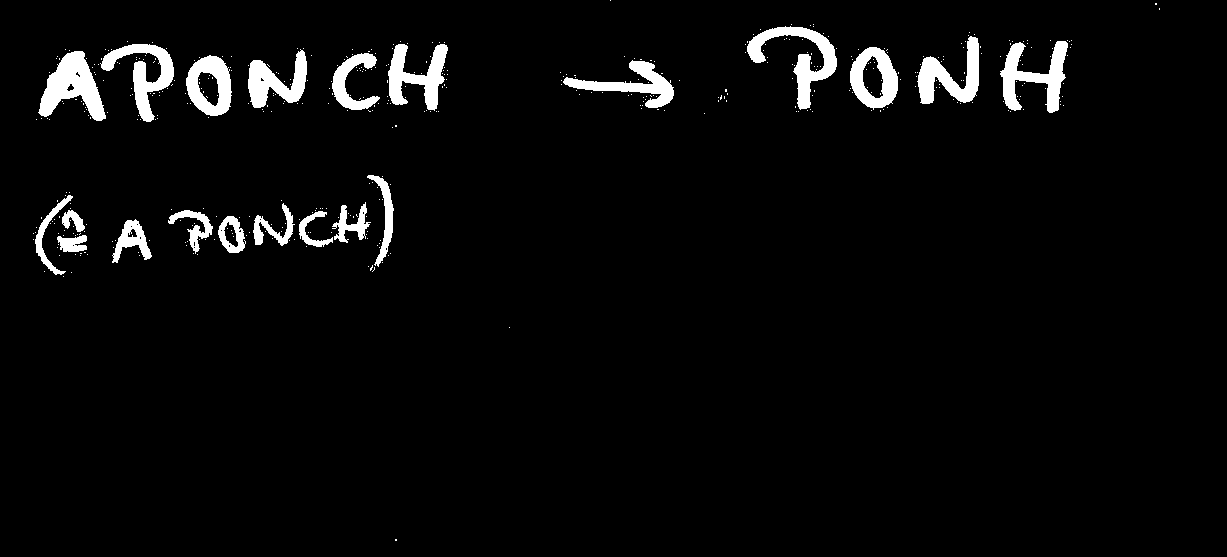 APONCH → PONH
(≅ A PONCH)